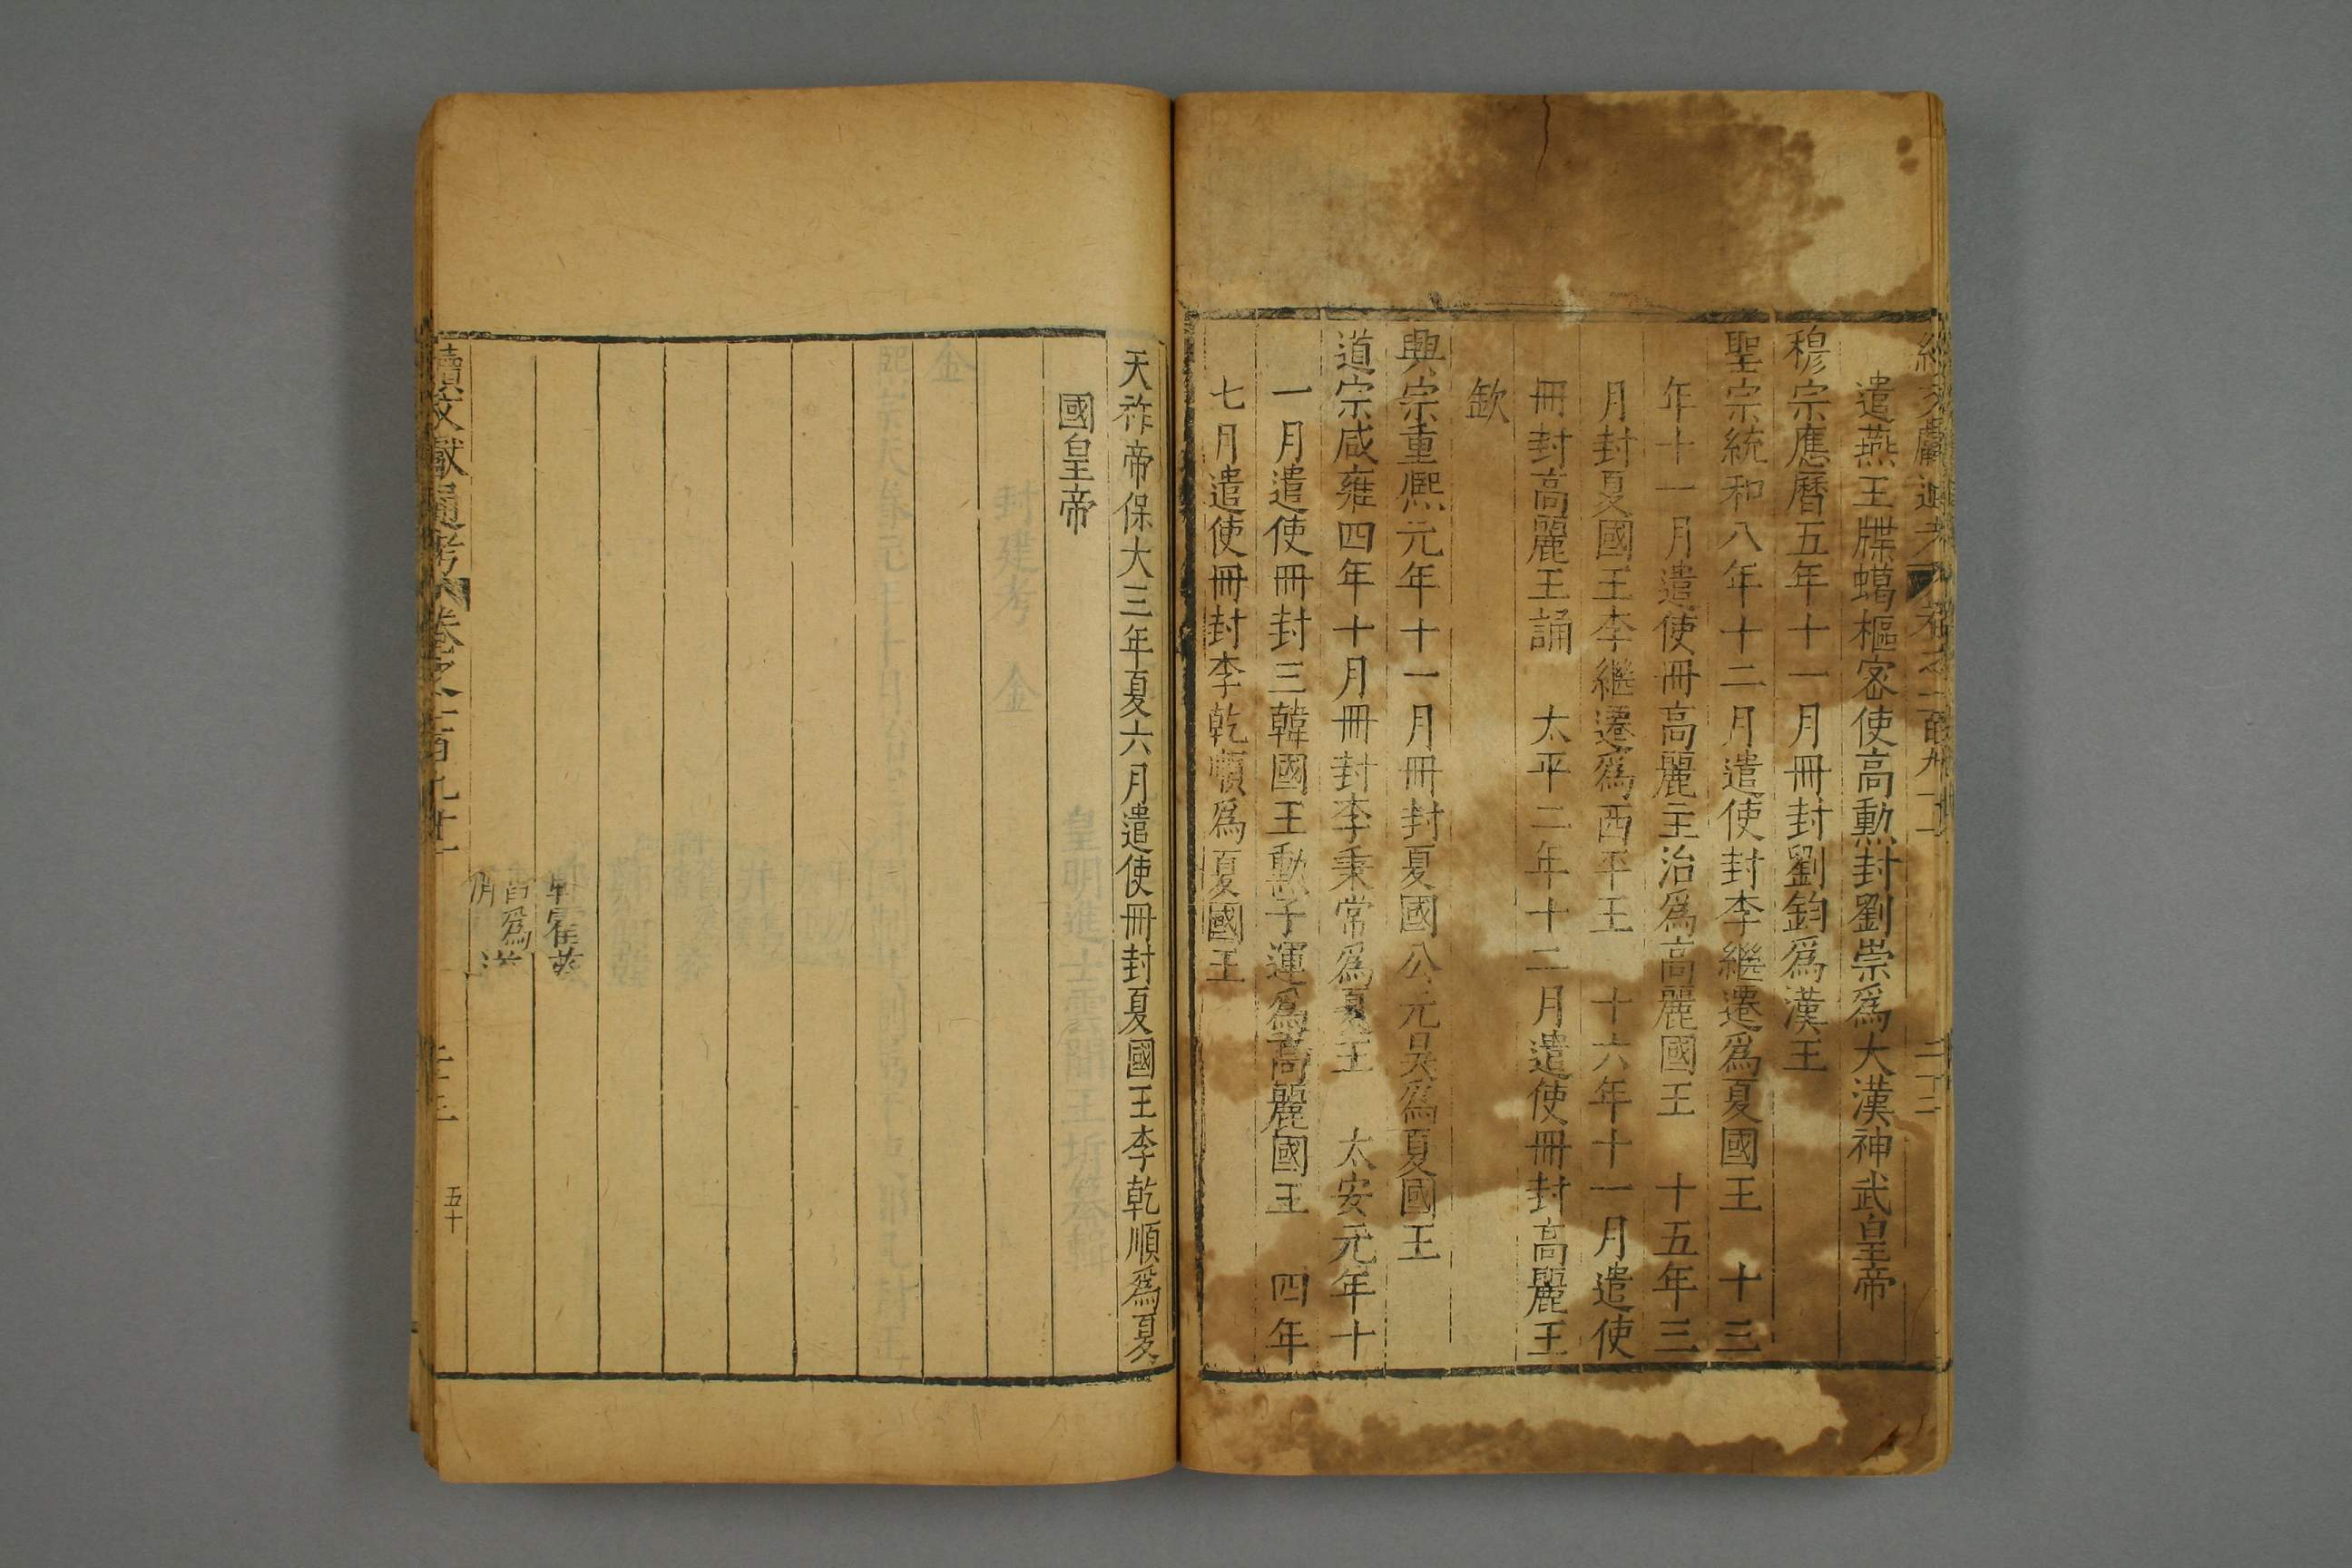 遣燕王牒蠟樞密使高勳封劉崇爲大漢神武皇帝
穆宗應曆五年十一月冊封劉鈞爲漢王
聖宗統和八年十二月遣使封李繼遷爲夏國王　十三
年十一月遣使冊高麗王治爲高麗國王　十五年三
月封夏國王李繼遷爲西平王　十六年十一月遣使
冊封高麗王誦　太平二年十二月遣使冊封高麗王
欽
興宗重熈元年十一月冊封夏國公元昊爲夏國王
道宗咸雍四年十月冊封李秉常爲夏王　太安元年十
一月遣使冊封三韓國王勳子運爲高麗國王　四年
七月遣使冊封李乾順爲夏國王
天祚帝保大三年夏六月遣使冊封夏國王李乾順爲夏
國皇帝
續文獻通考　卷之一百九十一　二十三　五十